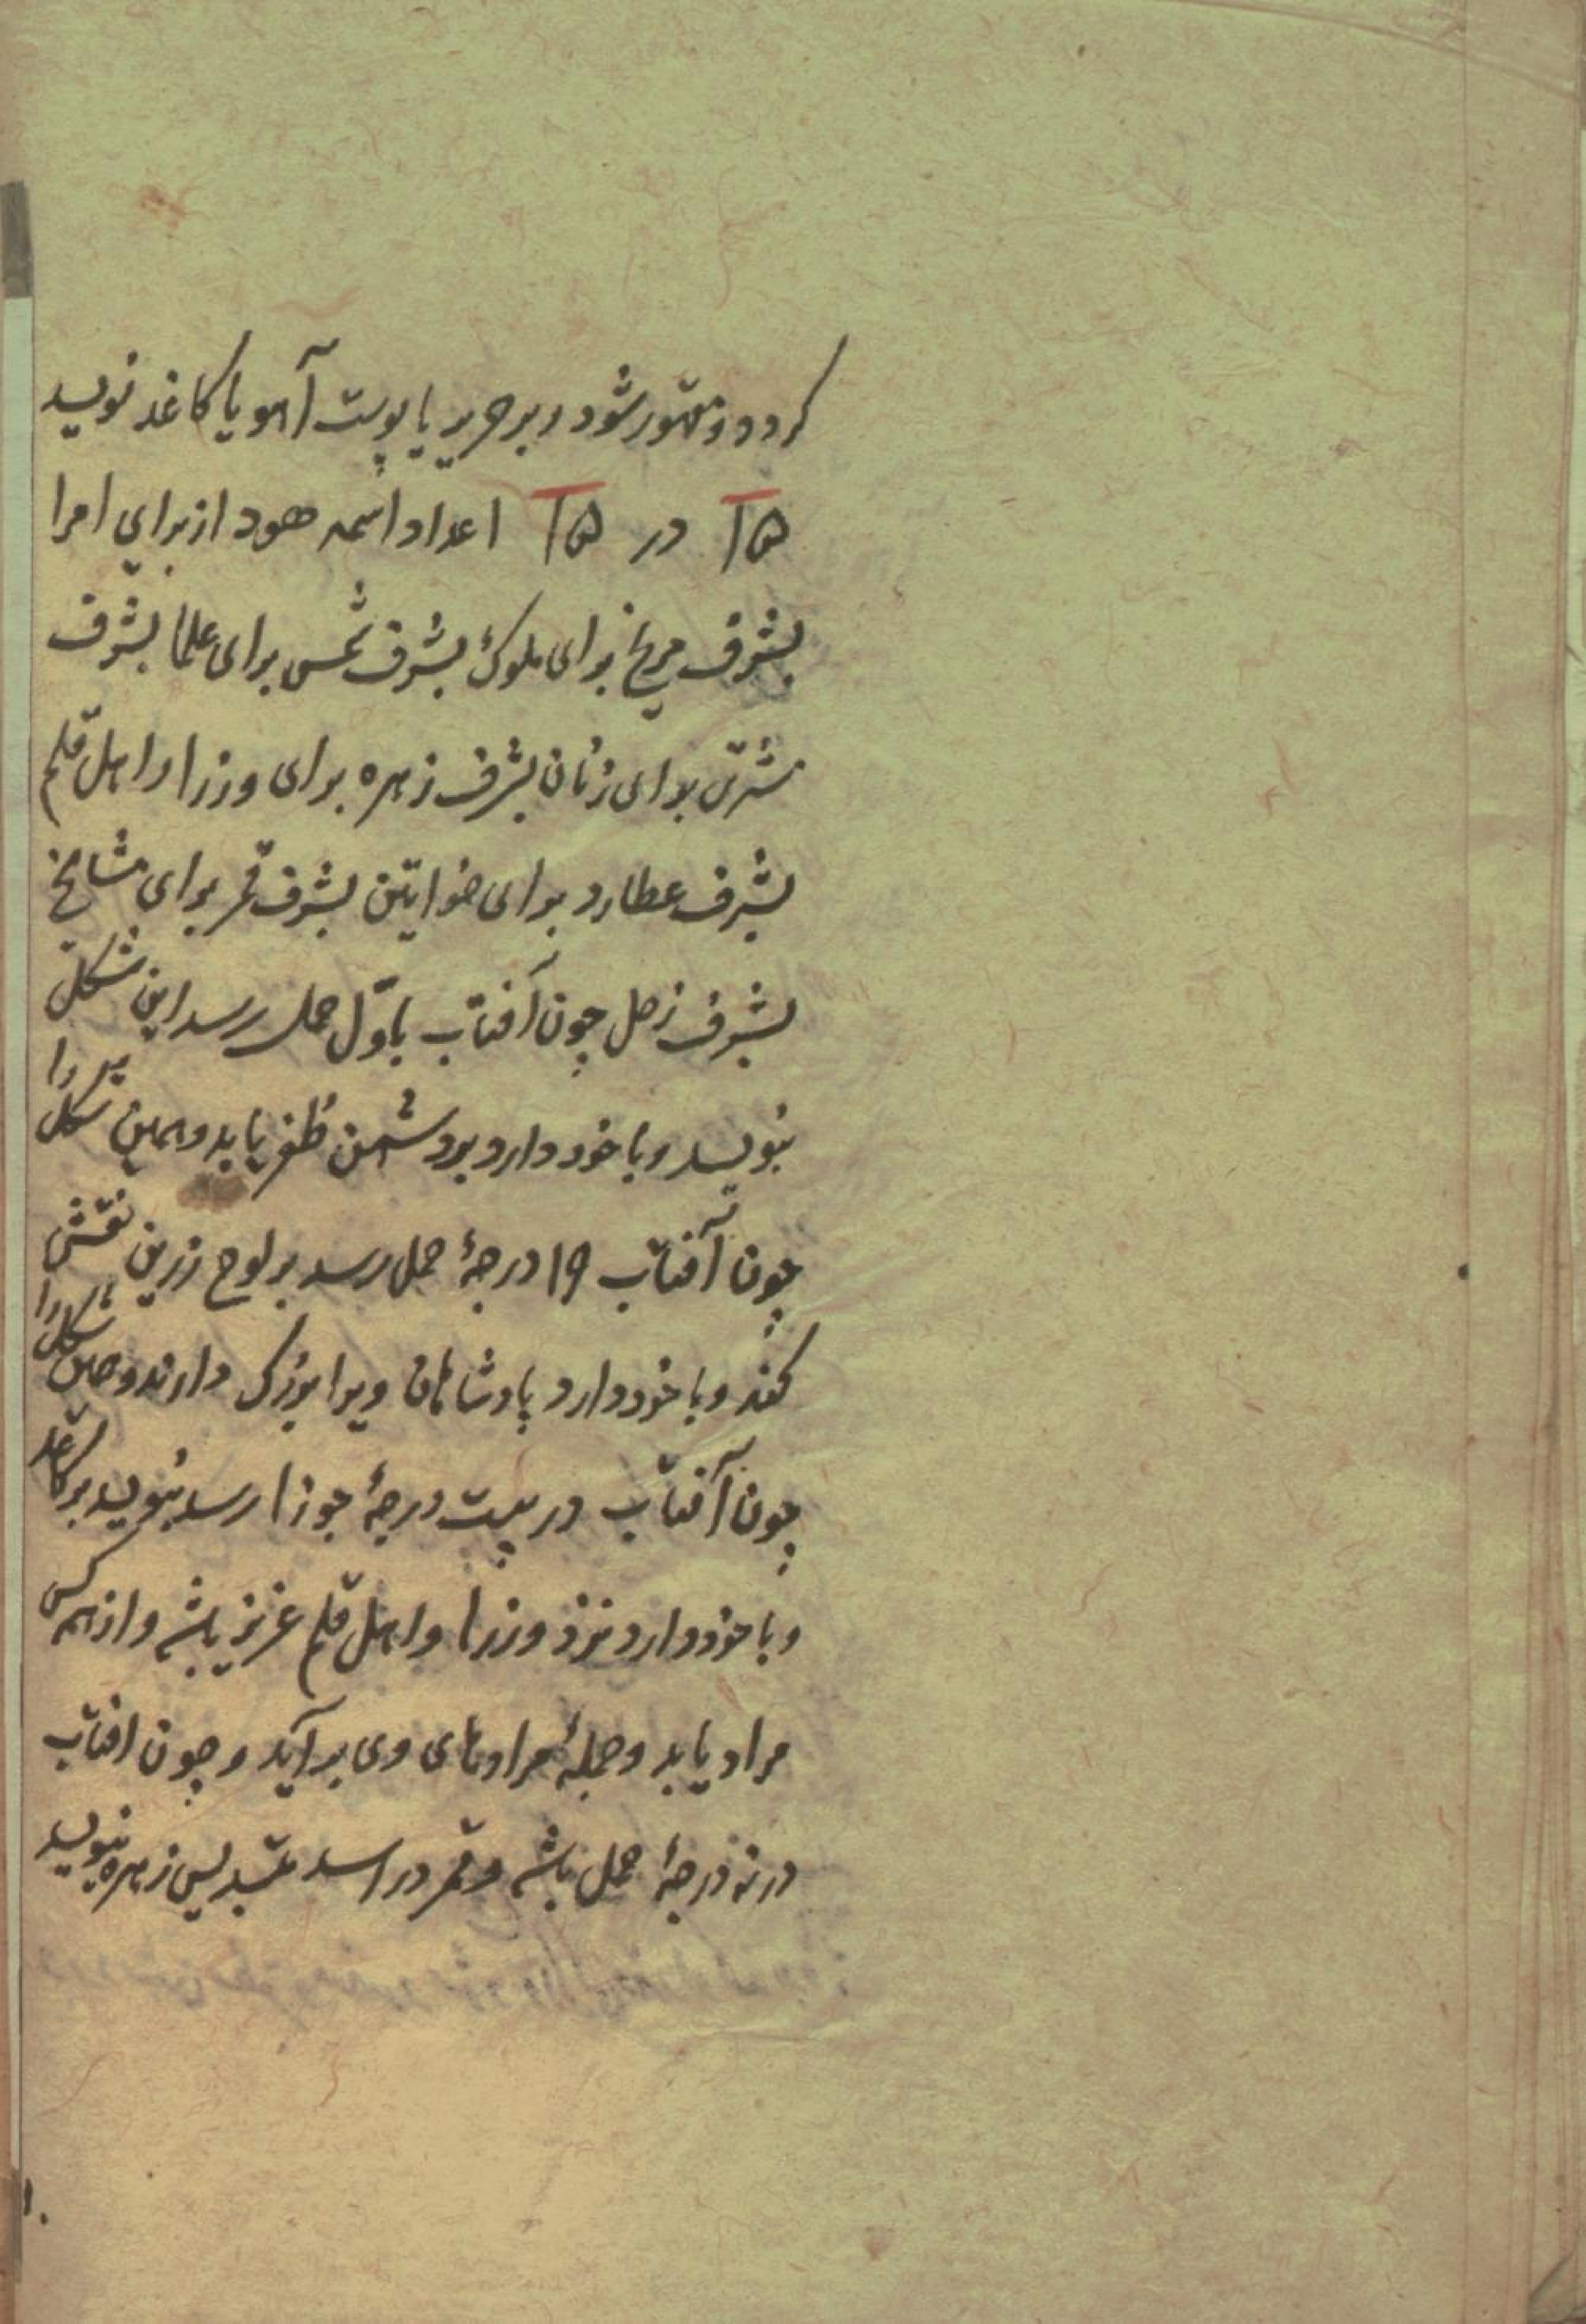 کردد ومقهور شود و بر حریر یا پوست آهو یا کاغذ نویسد
۱۵ در ۱۵ اعداد اسمه هود از برای امرا
بشرف مریخ برای ملوک بشرف شمس برای علما بشرف
مشتری برای زنان بشرف زهره برای وزرا و اهل قلم
بشرف عطارد برای خواتین بشرف قمر برای مشایخ
بشرف زحل چون آفتاب باوّل حمل رسد این شکل
بنویسد و با خود دارد بر دشمن ظفر یابد و همین شکل را
چون آفتاب ۱۹ درجهٔ حمل رسد بر لوح زرین نقش
کند و با خود دارد پادشاهان ویرا بزرک دارند و همین شکل را
چون آفتاب در بیست درجهٔ جوزا رسد بنویسد بر کاغذ
و با خود دارد نزد وزرا و اهل قلم عزیز باشد و از همه کس
مراد یابد و جملهٔ مرادهای وی برآید و چون افتاب
در نه درجهٔ حمل باشد و قمر در اسد بتسدیس زهره بنویسد